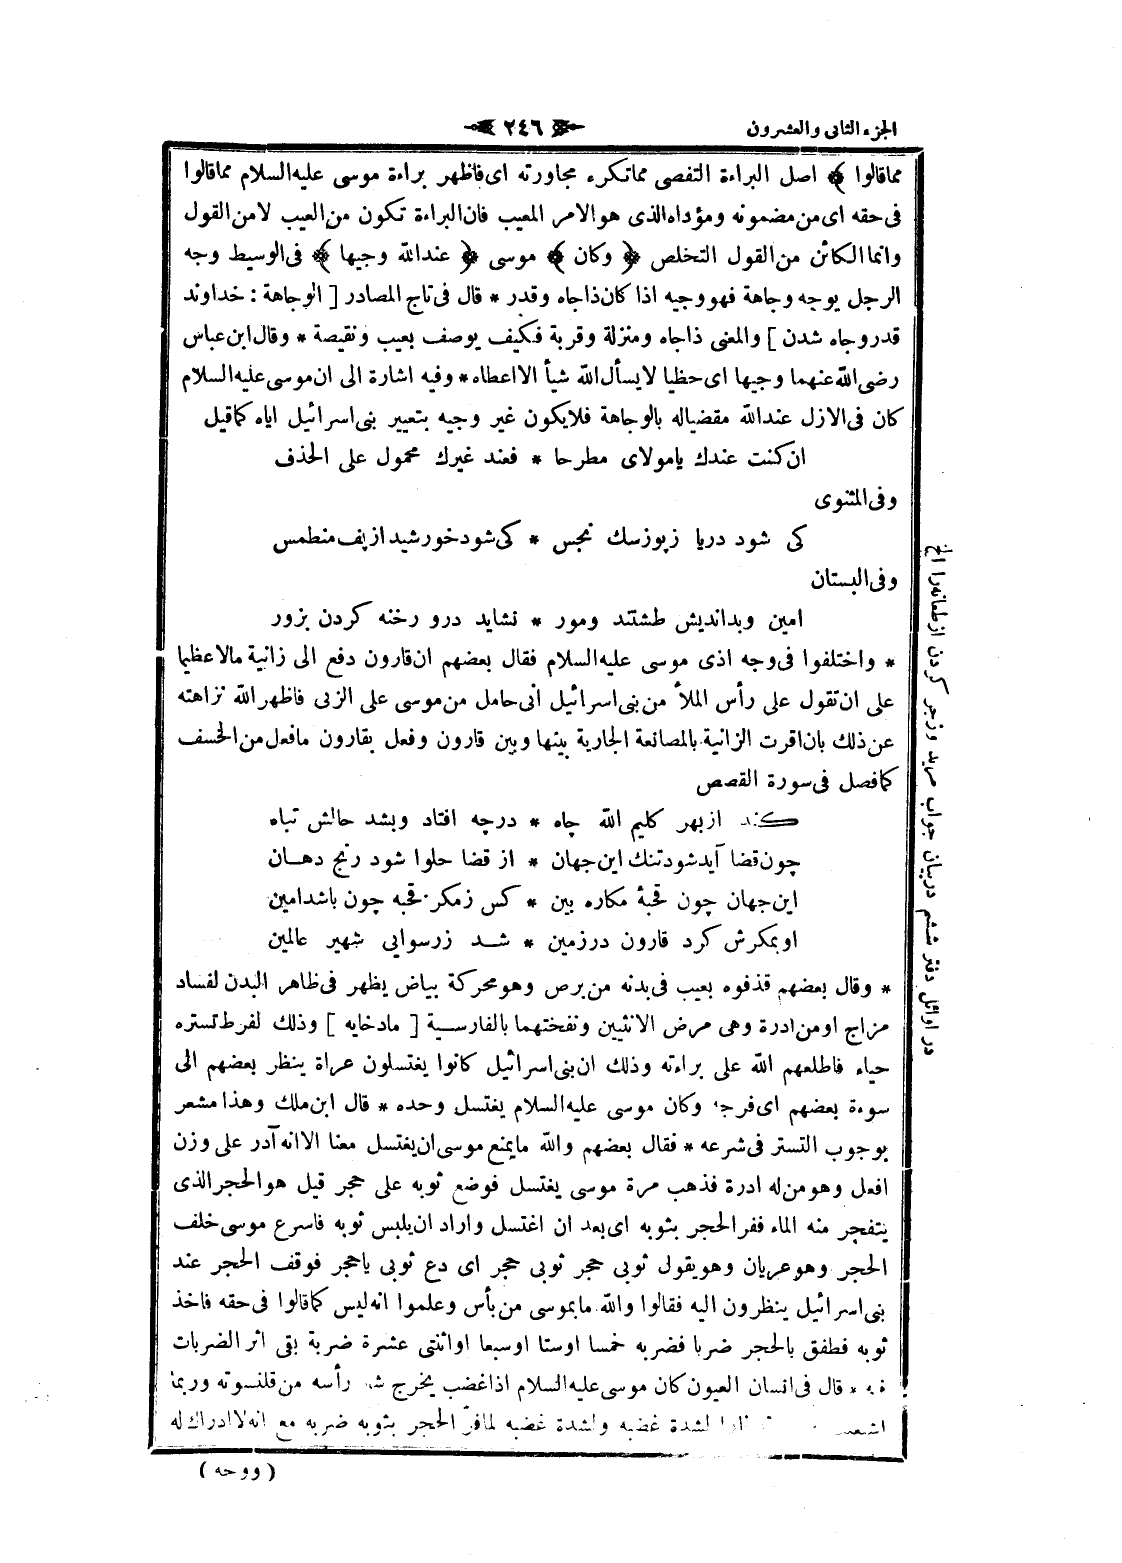 الجزء الثانى والعشرون
﴿ ٢٤٦ ﴾
مماقالوا ﴾ اصل البراءة التفصى مماتكره مجاورته اى فاظهر براءة موسى عليه السلام مماقالوا
فى حقه اى من مضمونه ومؤداه الذى هو الامر المعيب فان البراءة تكون من العيب لا من القول
وانما الكائن من القول التخلص ﴿ وكان ﴾ موسى ﴿ عند الله وجيها ﴾ فى الوسيط وجه
الرجل يوجه وجاهة فهو وجيه اذا كان ذاجاه وقدر * قال فى تاج المصادر [ الوجاهة : خداوند
قدر وجاه شدن ] والمعنى ذاجاه ومنزلة وقربة فكيف يوصف بعيب ونقيصة * وقال ابن عباس
رضى الله عنهما وجيها اى حظيا لا يسأل الله شيأ الا اعطاه * وفيه اشارة الى ان موسى عليه السلام
كان فى الازل عند الله مقضياله بالوجاهة فلا يكون غير وجيه بتعيير بنى اسرائيل اياه كما قيل
ان كنت عندك يا مولاى مطرحا * فعند غيرك محمول على الحذف
وفى المثنوى
كى شود دريا زپوزسك نجس * كى شود خورشيد از پف منطمس
وفى البستان
امين وبدانديش طشتند ومور * نشايد درو رخنه كردن بزور
* واختلفوا فى وجه اذى موسى عليه السلام فقال بعضهم ان قارون دفع الى زانية مالا عظيما
على ان تقول على رأس الملأ من بنى اسرائيل انى حامل من موسى على الزنى فاظهر الله نزاهته
عن ذلك بان اقرت الزانية بالمصانعة الجارية بينها وبين قارون وفعل بقارون مافعل من الخسف
كما فصل فى سورة القصص
كند از بهر كليم الله چاه * درچه افتاد وبشد حالش تباه
چون قضا آيد شود تنك اين جهان * از قضا حلوا شود رنج دهان
اين جهان چون قحبۀ مكاره بين * كس زمكر قحبه چون باشد امين
او بمكرش كرد قارون در زمين * شد زرسوايى شهير عالمين
* وقال بعضهم قذفوه بعيب فى بدنه من برص وهو محركة بياض يظهر فى ظاهر البدن لفساد
مزاج او من ادرة وهى مرض الانثيين ونفختهما بالفارسية [ مادخايه ] وذلك لفرط تستره
حياء فاطلعهم الله على براءته وذلك ان بنى اسرائيل كانوا يغتسلون عراة ينظر بعضهم الى
سوءة بعضهم اى فرجه وكان موسى عليه السلام يغتسل وحده * قال ابن ملك وهذا مشعر
بوجوب التستر فى شرعه * فقال بعضهم والله مايمنع موسى ان يغتسل معنا الا انه آدر على وزن
افعل وهو من له ادرة فذهب مرة موسى يغتسل فوضع ثوبه على حجر قيل هو الحجر الذى
يتفجر منه الماء ففر الحجر بثوبه اى بعد ان اغتسل واراد ان يلبس ثوبه فاسرع موسى خلف
الحجر وهو عريان وهو يقول ثوبى حجر ثوبى حجر اى دع ثوبى ياحجر فوقف الحجر عند
بنى اسرائيل ينظرون اليه فقالوا والله مابموسى من بأس وعلموا انه ليس كما قالوا فى حقه فاخذ
ثوبه فطفق بالحجر ضربا فضربه خمسا اوستا اوسبعا او اثنتى عشرة ضربة بقى اثر الضربات
فيه * قال فى انسان العيون كان موسى عليه السلام اذا غضب يخرج شعر رأسه من قلنسوته وربما
لشدة غضبه ولشدة غضبه لمافر الحجر بثوبه ضربه مع انه لا ادراك له
( ووجه )
در اوائل دفتر ششم دربيان جواب مريد وزجر كردن از طعانه را الخ